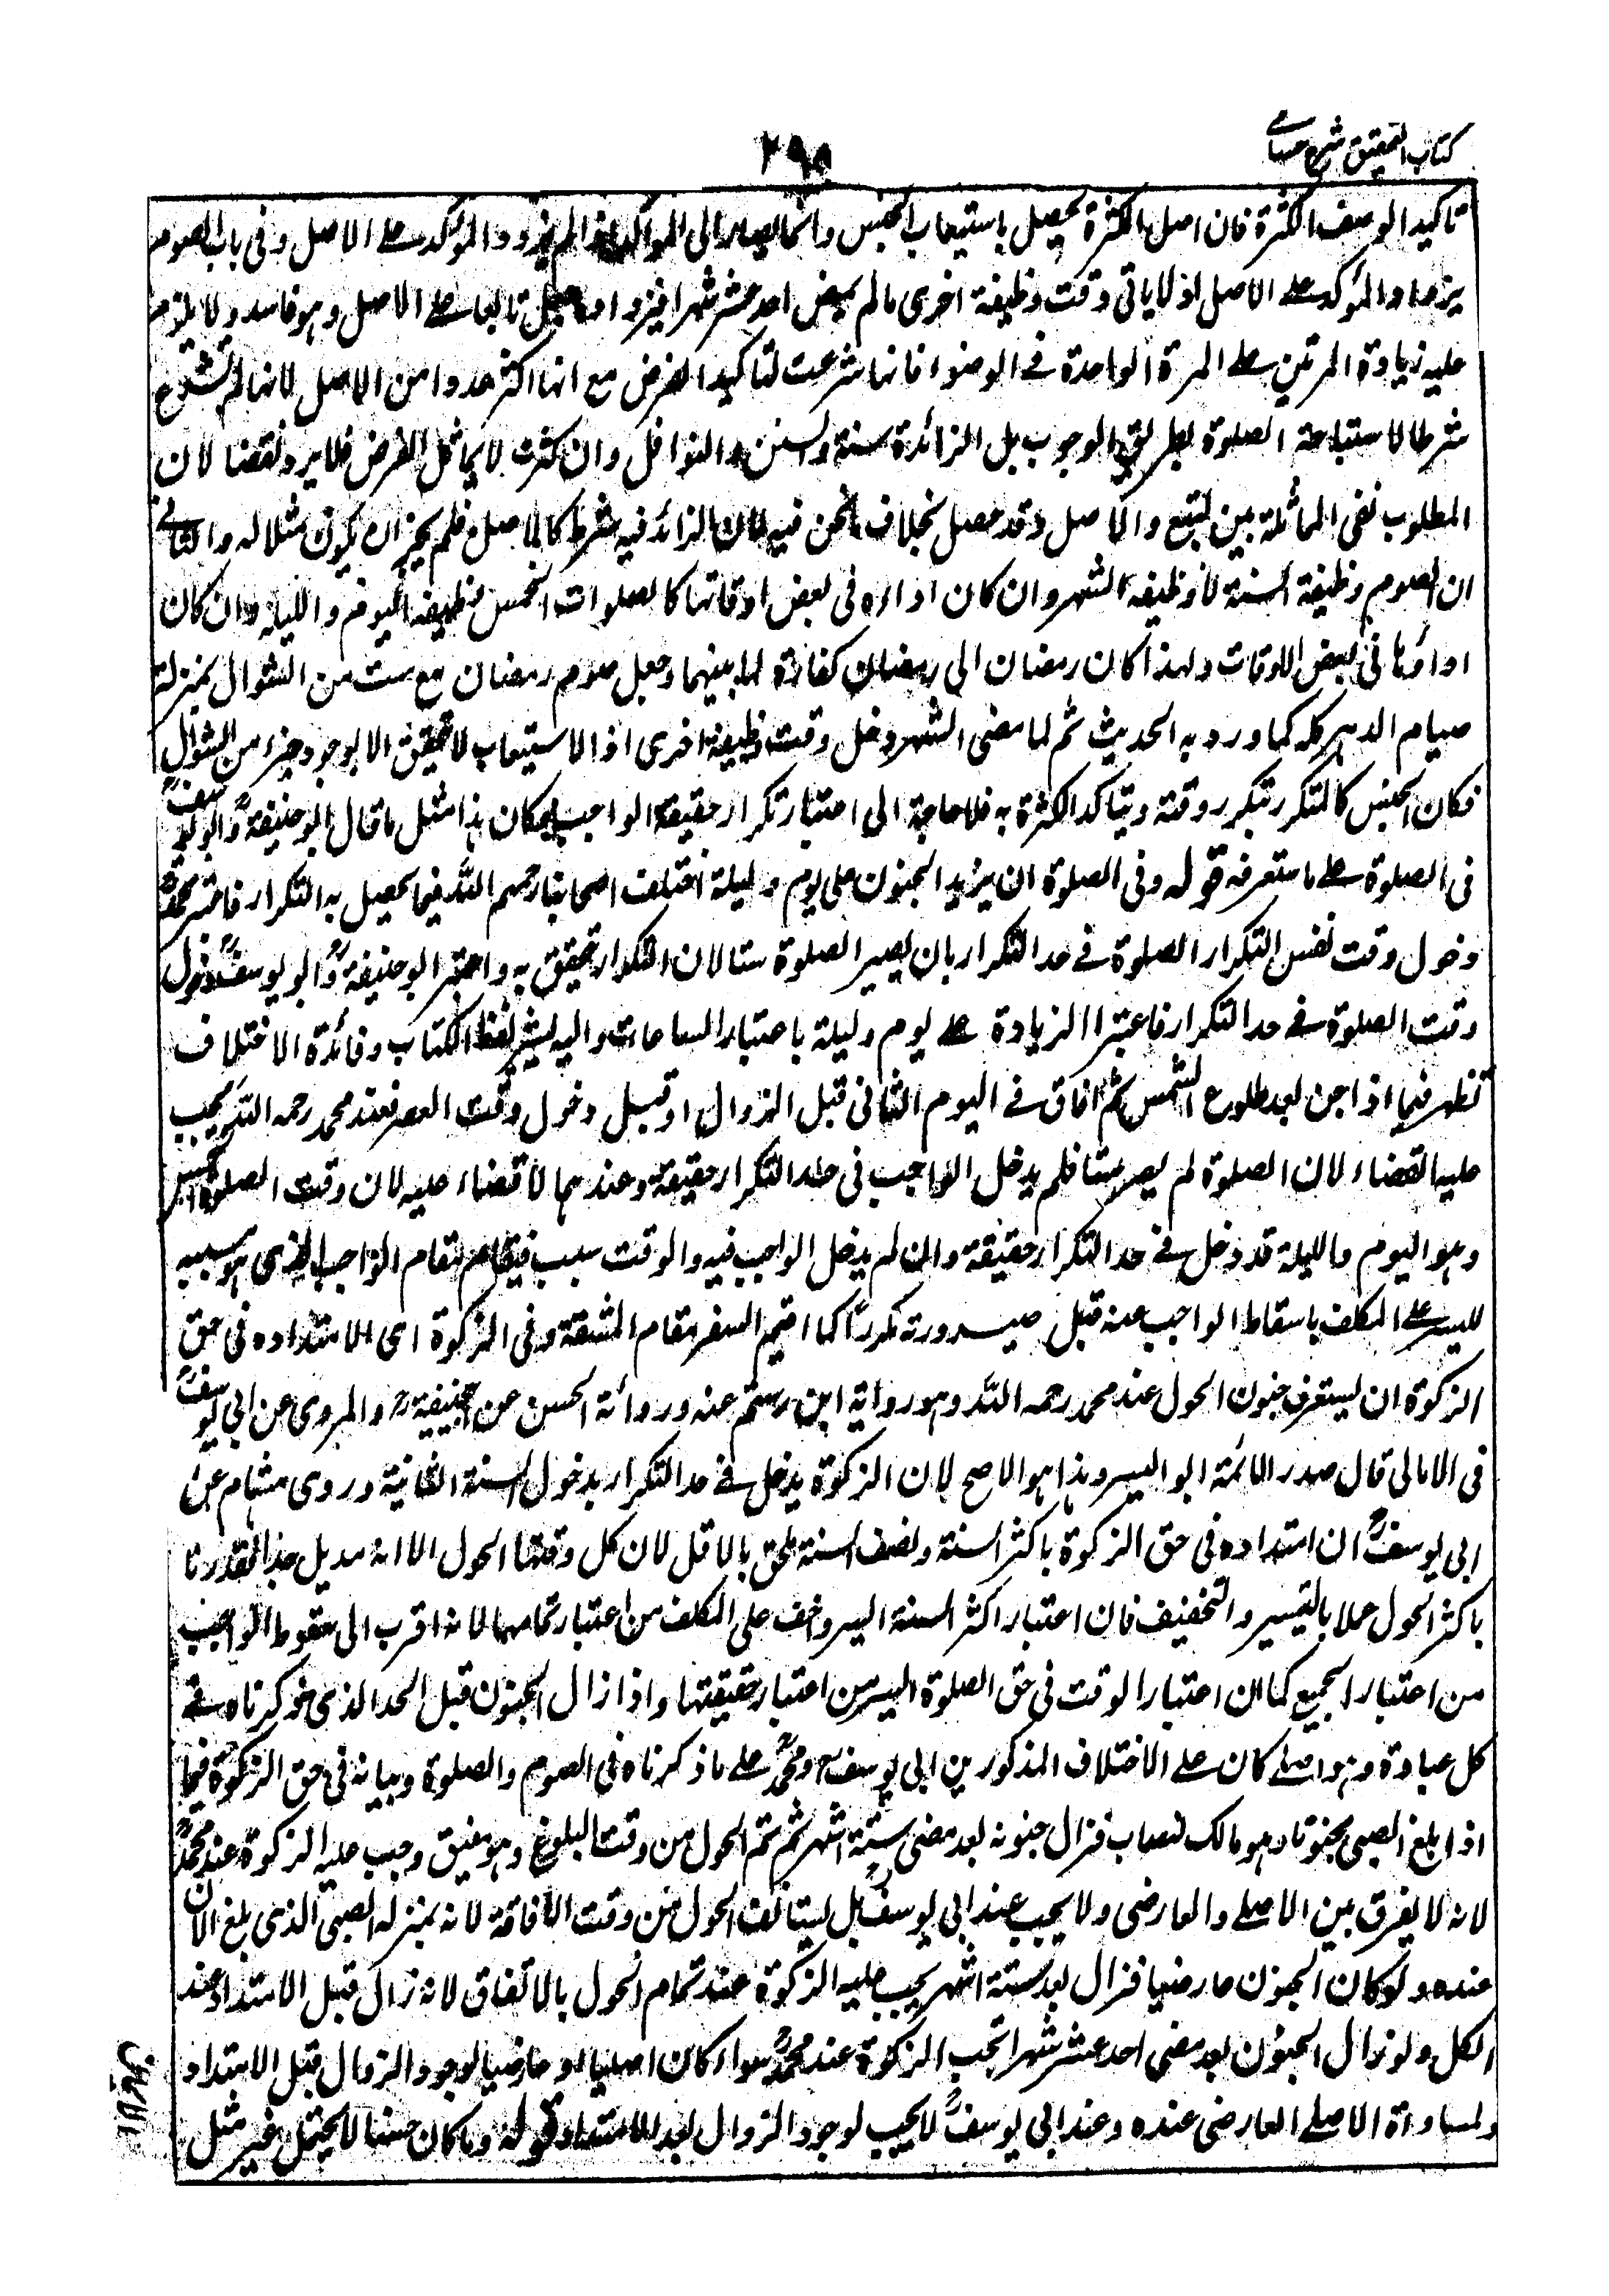 كتاب التحقيق شرح حسامى
٢٩٥
تاكيد الوصف الكثرة فان اصل الكثرة يحصل باستيعاب الجنس وانما يصار الى الموكد اذا لم يزدد المؤكد على الاصل وفى باب الصوم
يزداد المؤكد على الاصل اذ لا ياتى وقت وظيفة اخرى ما لم يمض احد عشر شهرا فيزداد تابعا على الاصل وهو فاسد ولا يلزم
عليه زيادة المرتين على المرة الواحدة فى الوضوء فانها شرعت لتاكيد الفرض مع انها اكثر عددا من الاصل لانها لم تشرع
شرطا لاستباحة الصلوة بطريق الوجوب بل الزائدة سنة والسنن والنوافل وان كثرت لا يماثل الفرض فلا يرد نقضا لان
المطلوب نفى المماثلة بين التبع والاصل وقد حصل بخلاف ما نحن فيه لان الزائد فيه شرط كالاصل فلم يجز ان يكون مثلا له والثانى
ان الصوم وظيفة السنة لا وظيفة الشهر وان كان اداءه فى بعض اوقاتها كالصلوات الخمس وظيفة اليوم والليلة وان كان
اداؤها فى بعض الاوقات ولهذا كان رمضان الى رمضان كفارة لما بينهما وجعل صوم رمضان مع ست من الشوال بمنزلة
صيام الدهر كله كما ورد به الحديث ثم لما مضى الشهر دخل وقت وظيفة اخرى اذ الاستيعاب لا يتحقق الا بوجود جزء من الشوال
فكان الجنس كالمتكرر بتكرر وقته ويتاكد الكثرة به فلا حاجة الى اعتبار تكرار حقيقة الواجب فكان هذا مثل ما قال ابو حنيفةؒ وابو يوسفؒ
فى الصلوة على ما ستعرفه قوله وفى الصلوة ان يزيد الجنون على يوم وليلة اختلف اصحابنا رحمهم الله فيما يحصل به التكرار فاعتبر محمدؒ
دخول وقت نفس التكرار الصلوة فى حد التكرار بان يصير الصلوة ستا لان التكرار يتحقق به واعتبر ابو حنيفةؒ وابو يوسفؒ دخول
وقت الصلوة فى حد التكرار فاعتبرا الزيادة على يوم وليلة باعتبار الساعات واليه يشير لفظ الكتاب وفائدة الاختلاف
تظهر فيما اذا جن بعد طلوع الشمس ثم افاق فى اليوم الثانى قبل الزوال او قبل دخول وقت العصر فعند محمد رحمه الله يجب
عليه القضاء لان الصلوة لم يصر ستا فلم يدخل الواجب فى حد التكرار حقيقة وعندهما لا قضاء عليه لان وقت الصلوة الخمس
وهو اليوم والليلة قد دخل فى حد التكرار حقيقة وان لم يدخل الواجب فيه والوقت سبب فيقام مقام الواجب الذى هو سببه
لليسر على المكلف باسقاط الواجب عنه قبل صيرورته مكررا كما اقيم السفر مقام المشقة وفى الزكوة اى الامتداده فى حق
الزكوة ان يستغرق جنون الحول عند محمد رحمه الله وهو رواية ابن رستم عنه ورواية الحسن عن ابى حنيفة رح والمروى عن ابى يوسفؒ
فى الامالى قال صدر الائمة ابو اليسر وهذا هو الاصح لان الزكوة يدخل فى حد التكرار بدخول السنة الثانية وروى هشام عن
ابى يوسفؒ ان امتداده فى حق الزكوة باكثر السنة ونصف السنة ملحق بالاقل لان كل وقتها الحول الا انه مديد جدا فقدرنا
باكثر الحول عملا بالتيسير والتخفيف فان اعتبار اكثر السنة ايسر واخف على المكلف من اعتبار تمامها لانه اقرب الى سقوط الواجب
من اعتبار الجميع كما ان اعتبار الوقت فى حق الصلوة ايسر من اعتبار حقيقتها واذا زال الجنون قبل الحد الذى ذكرناه فى
كل عبادة وهو اصلى كان على الاختلاف المذكور بين ابى يوسفؒ ومحمدؒ على ما ذكرناه فى الصوم والصلوة وبيانه فى حق الزكوة فيما
اذا بلغ الصبى مجنونا وهو مالك لنصاب فزال جنونه بعد مضى ستة اشهر ثم تم الحول من وقت البلوغ وهو مفيق وجب عليه الزكوة عند محمدؒ
لانه لا يفرق بين الاصلى والعارضى ولا يجب عند ابى يوسفؒ بل يستانف الحول من وقت الافاقة لانه بمنزلة الصبى الذى بلغ الان
عنده ولو كان الجنون عارضيا فزال بعد ستة اشهر يجب عليه الزكوة عند تمام الحول بالاتفاق لانه زال قبل الامتداد عند
الكل ولو زال الجنون بعد مضى احد عشر شهرا تجب الزكوة عند محمدؒ سواء كان اصليا او عارضيا لوجود الزوال قبل الامتداد
ولمساواة الاصلى العارضى عنده وعند ابى يوسفؒ لا يجب لوجود الزوال بعد الامتداد قوله وما كان حسنا لا يحتمل غير مثل